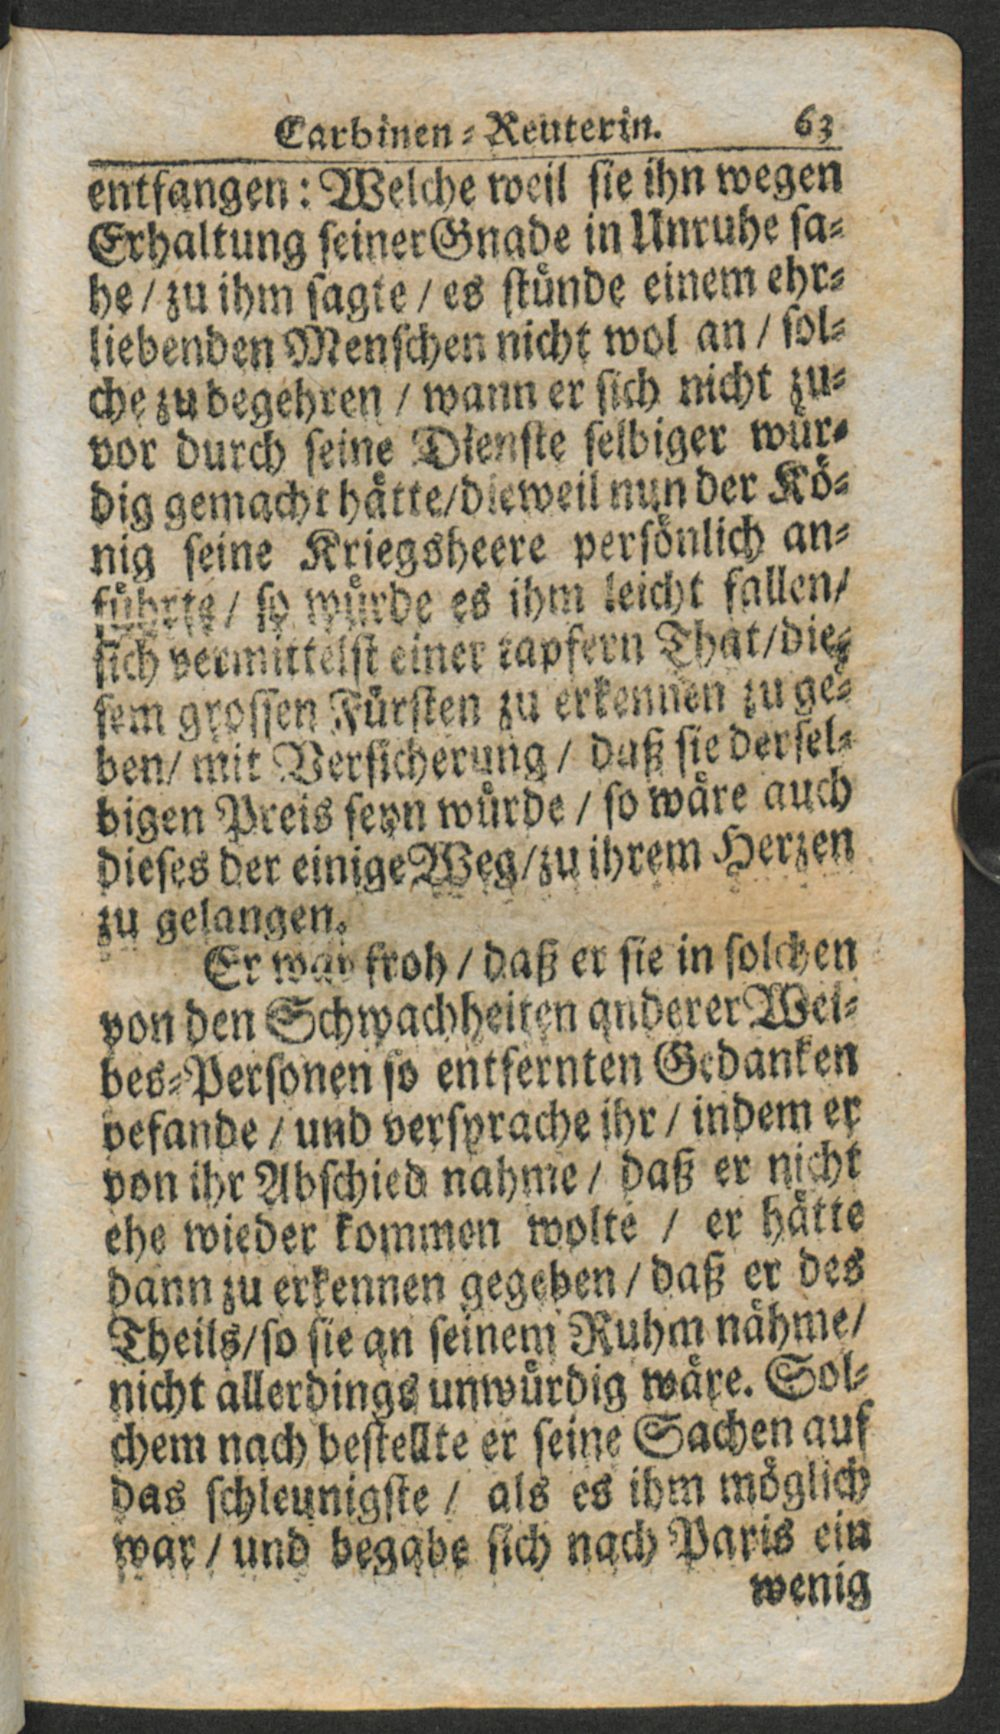 Carbinen-Reuterin. 63
entfangen: Welche weil sie ihn wegen
Erhaltung seiner Gnade in Unruhe sa-
he / zu ihm sagte / es stünde einem ehr-
liebenden Menschen nicht wol an / sol-
che zu begehren / wann er sich nicht zu-
vor durch seine Dienste selbiger wür-
dig gemacht hätte/dieweil nun der Kö-
nig seine Kriegsheere persönlich an-
führte / so würde es ihm leicht fallen/
sich vermittelst einer tapfern That/die-
sem grossen Fürsten zu erkennen zu ge-
ben/ mit Versicherung / daß sie dersel-
bigen Preis seyn würde / so wäre auch
dieses der einige Weg/zu ihrem Herzen
zu gelangen.
Er war froh / daß er sie in solchen
von den Schwachheiten anderer Wei-
bes-Personen so entfernten Gedanken
befande / und versprache ihr / indem er
von ihr Abschied nahme / daß er nicht
ehe wieder kommen wolte / er hätte
dann zu erkennen gegeben / daß er des
Theils/so sie an seinem Ruhm nähme/
nicht allerdings unwürdig wäre. Sol-
chem nach bestellte er seine Sachen auf
das schleunigste / als es ihm möglich
war / und begabe sich nach Paris ein
wenig